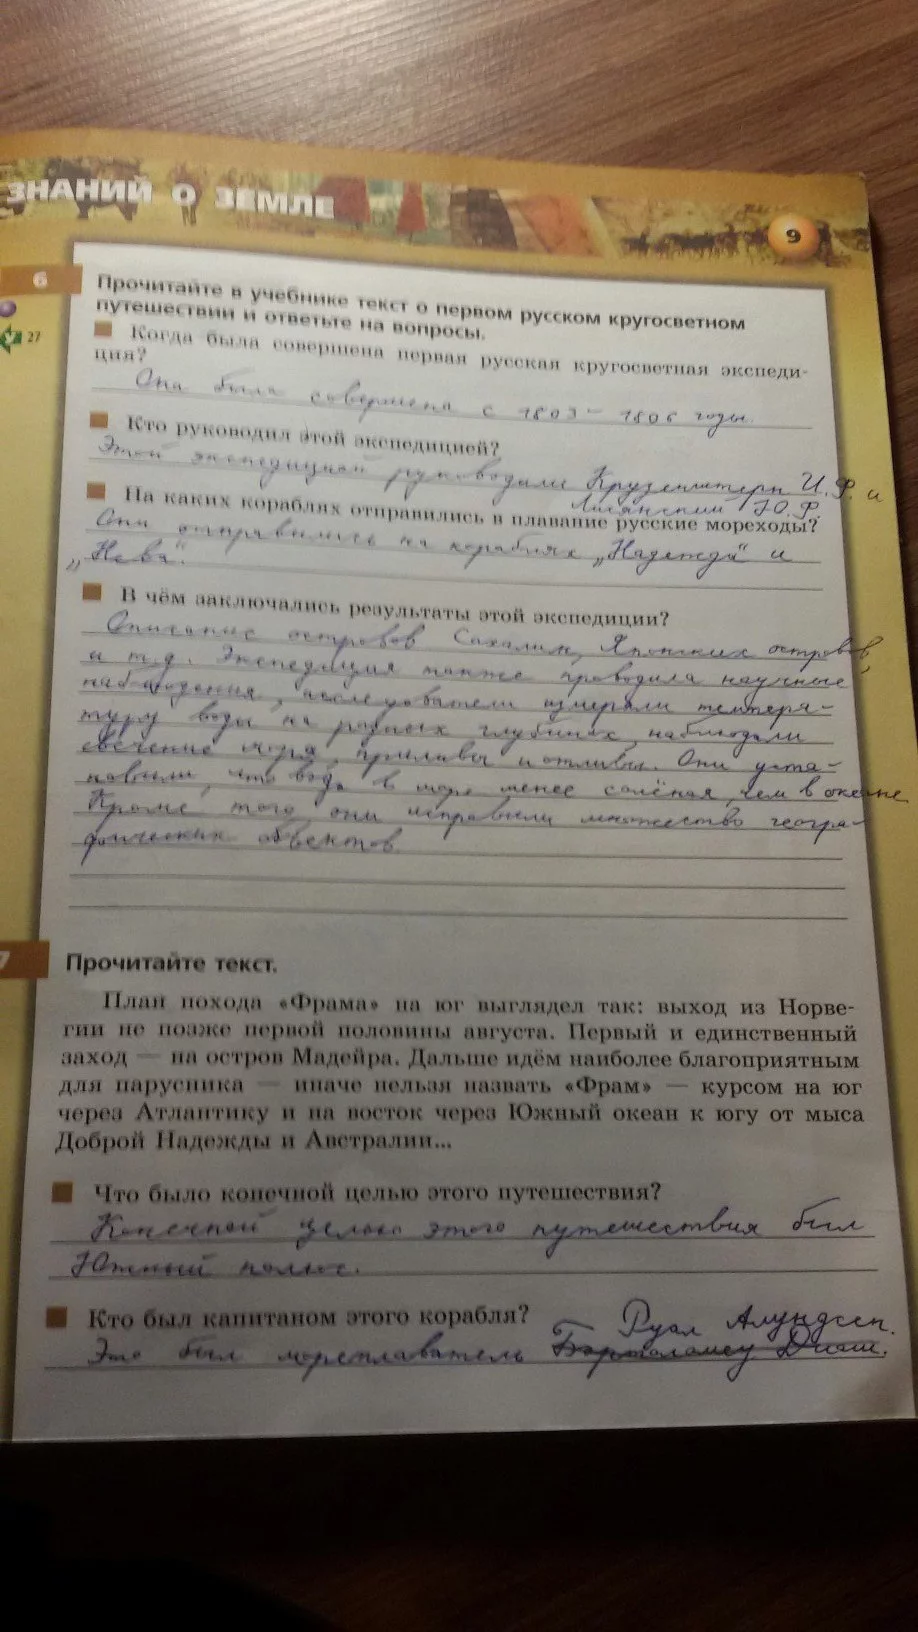 ЗНАНИЙ О ЗЕМЛЕ
9
6
Прочитайте в учебнике текст о первом русском кругосветном
путешествии и ответьте на вопросы.
27
Когда была совершена первая русская кругосветная экспеди-
ция?
Она была совершена с 1803 – 1806 годы.
Кто руководил этой экспедицией?
Этой экспедицией руководили Крузенштерн И.Ф. и
Лисянский Ю.Ф.
На каких кораблях отправились в плавание русские мореходы?
Они отправились на кораблях „Надежда" и
„Нева".
В чём заключались результаты этой экспедиции?
Описание островов Сахалин, Японских островов,
и т.д. Экспедиция также проводила научные
наблюдения, исследователи измеряли темпера-
туру воды на разных глубинах, наблюдали
свечение моря, приливы и отливы. Они уста-
новили, что вода в море менее солёная, чем в океане
Кроме того они исправили множество геогра-
фических объектов.
7
Прочитайте текст.
План похода «Фрама» на юг выглядел так: выход из Норве-
гии не позже первой половины августа. Первый и единственный
заход — на остров Мадейра. Дальше идём наиболее благоприятным
для парусника — иначе нельзя назвать «Фрам» — курсом на юг
через Атлантику и на восток через Южный океан к югу от мыса
Доброй Надежды и Австралии...
Что было конечной целью этого путешествия?
Конечной целью этого путешествия был
Южный полюс.
Кто был капитаном этого корабля?
Руал Амундсен.
Это был мореплаватель Бартоломеу Диаш.